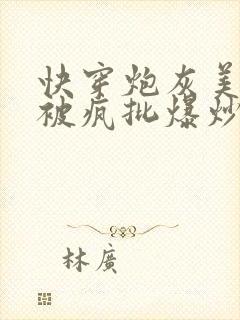 快穿炮灰美
被疯批爆炒
林廣